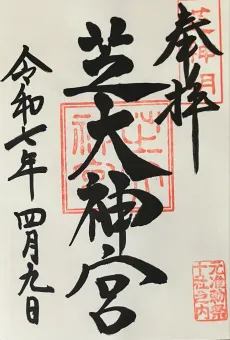 奉拝
芝大神宮
令和七年 四月九日
元准勅祭
十社之内